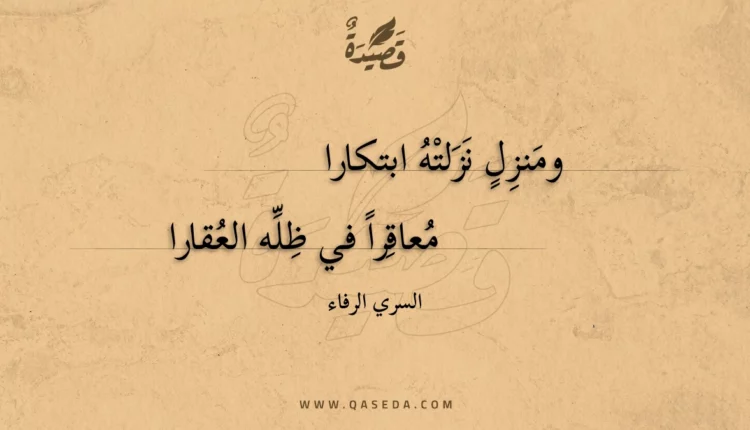 قَصِيدَةٌ
ومَنزِلٍ نَزَلتْهُ ابتكارا
مُعاقِراً في ظِلِّه العُقارا
السري الرفاء
WWW.QASEDA.COM